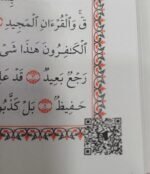 قٓ ۚ وَالْقُرْءَانِ الْمَجِيدِ
الْكَٰفِرُونَ هَٰذَا شَىْ
رَجْعٌ بَعِيدٌ ۝ قَدْ عَلِ
حَفِيظٌ ۝ بَلْ كَذَّبُو